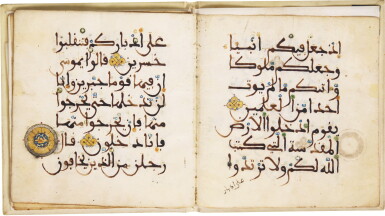 اذ جعل فيكم انبيا
وجعلكم ملوكا
واتيكم ما لم يوت
احدا من العلمين
يقوم ادخلوا الارض
المقدسة التي كتب
الله لكم ولا ترتدوا
على ادباركم فتنقلبوا
خسرين قالوا يموسى
ان فيها قوما جبرين وانا
لن ندخلها حتى يخرجوا
منها فان يخرجوا منها
فانا دخلون قال
رجلن من الذين يخافون